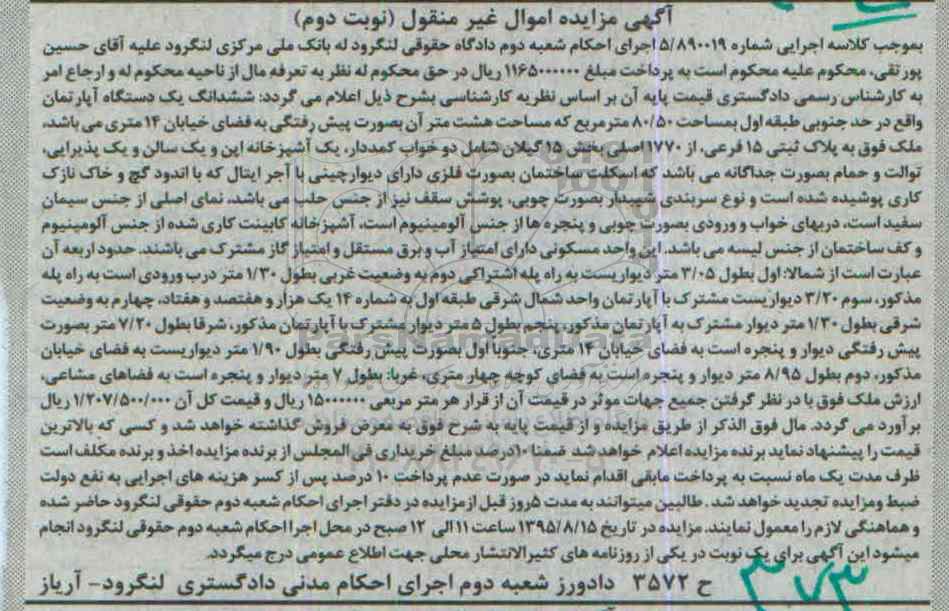 آگهی مزایده اموال غیر منقول (نوبت دوم)
بموجب کلاسه اجرایی شماره ۵/۸۹۰۰۱۹ اجرای احکام شعبه دوم دادگاه حقوقی لنگرود له بانک ملی مرکزی لنگرود علیه آقای حسین
پورتقی، محکوم علیه محکوم است به پرداخت مبلغ ۱۱۶۵۰۰۰۰۰۰ ریال در حق محکوم له نظر به تعرفه مال از ناحیه محکوم له و ارجاع امر
به کارشناس رسمی دادگستری قیمت پایه آن بر اساس نظریه کارشناسی بشرح ذیل اعلام می گردد: ششدانگ یک دستگاه آپارتمان
واقع در حد جنوبی طبقه اول بمساحت ۸۰/۵۰ مترمربع که مساحت هشت متر آن بصورت پیش رفتگی به فضای خیابان ۱۴ متری می باشد،
ملک فوق به پلاک ثبتی ۱۵ فرعی، از ۱۷۷۰ اصلی بخش ۱۵ گیلان شامل دو خواب کمددار، یک آشپزخانه اپن و یک سالن و یک پذیرایی،
توالت و حمام بصورت جداگانه می باشد که اسکلت ساختمان بصورت فلزی دارای دیوارچینی با آجر ایتال که با اندود گچ و خاک نازک
کاری پوشیده شده است و نوع سربندی شیبدار بصورت چوبی، پوشش سقف نیز از جنس حلب می باشد، نمای اصلی از جنس سیمان
سفید است، دربهای خواب و ورودی بصورت چوبی و پنجره ها از جنس آلومینیوم است، آشپزخانه کابینت کاری شده از جنس آلومینیوم
و کف ساختمان از جنس لیسه می باشد. این واحد مسکونی دارای امتیاز آب و برق مستقل و امتیاز گاز مشترک می باشند. حدود اربعه آن
عبارت است از شمالا: اول بطول ۳/۰۵ متر دیواریست به راه پله اشتراکی دوم به وضعیت غربی بطول ۱/۳۰ متر درب ورودی است به راه پله
مذکور، سوم ۳/۲۰ دیواریست مشترک با آپارتمان واحد شمال شرقی طبقه اول به شماره ۱۴ یک هزار و هفتصد و هفتاد، چهارم به وضعیت
شرقی بطول ۱/۳۰ متر دیوار مشترک به آپارتمان مذکور، پنجم بطول ۵ متر دیوار مشترک با آپارتمان مذکور، شرقا بطول ۷/۲۰ متر بصورت
پیش رفتگی دیوار و پنجره است به فضای خیابان ۱۴ متری، جنوبا اول بصورت پیش رفتگی بطول ۱/۹۰ متر دیواریست به فضای خیابان
مذکور، دوم بطول ۸/۹۵ متر دیوار و پنجره است به فضای کوچه چهار متری، غربا: بطول ۷ متر دیوار و پنجره است به فضاهای مشاعی،
ارزش ملک فوق با در نظر گرفتن جمیع جهات موثر در قیمت آن از قرار هر متر مربعی ۱۵۰۰۰۰۰۰ ریال و قیمت کل آن ۱/۲۰۷/۵۰۰/۰۰۰ ریال
برآورد می گردد. مال فوق الذکر از طریق مزایده و از قیمت پایه به شرح فوق به معرض فروش گذاشته خواهد شد و کسی که بالاترین
قیمت را پیشنهاد نماید برنده مزایده اعلام خواهد شد، ضمنا ۱۰درصد مبلغ خریداری فی المجلس از برنده مزایده اخذ و برنده مکلف است
ظرف مدت یک ماه نسبت به پرداخت مابقی اقدام نماید در صورت عدم پرداخت ۱۰ درصد پس از کسر هزینه های اجرایی به نفع دولت
ضبط ومزایده تجدید خواهد شد. طالبین میتوانند به مدت ۵روز قبل ازمزایده در دفتر اجرای احکام شعبه دوم حقوقی لنگرود حاضر شده
و هماهنگی لازم را معمول نمایند. مزایده در تاریخ ۱۳۹۵/۸/۱۵ ساعت ۱۱ الی ۱۲ صبح در محل اجرا احکام شعبه دوم حقوقی لنگرود انجام
میشود این آگهی برای یک نوبت در یکی از روزنامه های کثیرالانتشار محلی جهت اطلاع عمومی درج میگردد.
ح ۳۵۷۲ دادورز شعبه دوم اجرای احکام مدنی دادگستری لنگرود- آریاز
۳۷۳
ParsNamadData